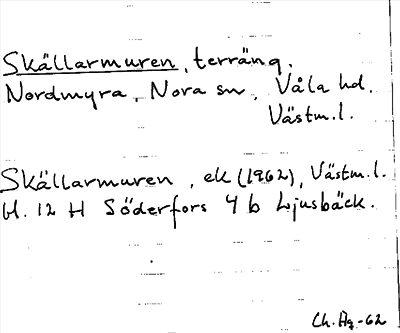 Skällarmuren, terräng.
Nordmyra, Nora sn, Våla hd.
Västm.l.
Skällarmuren, ek (1962), Västm.l.
bl. 12 H Söderfors 4 b Ljusbäck.
Ch. Ag -62